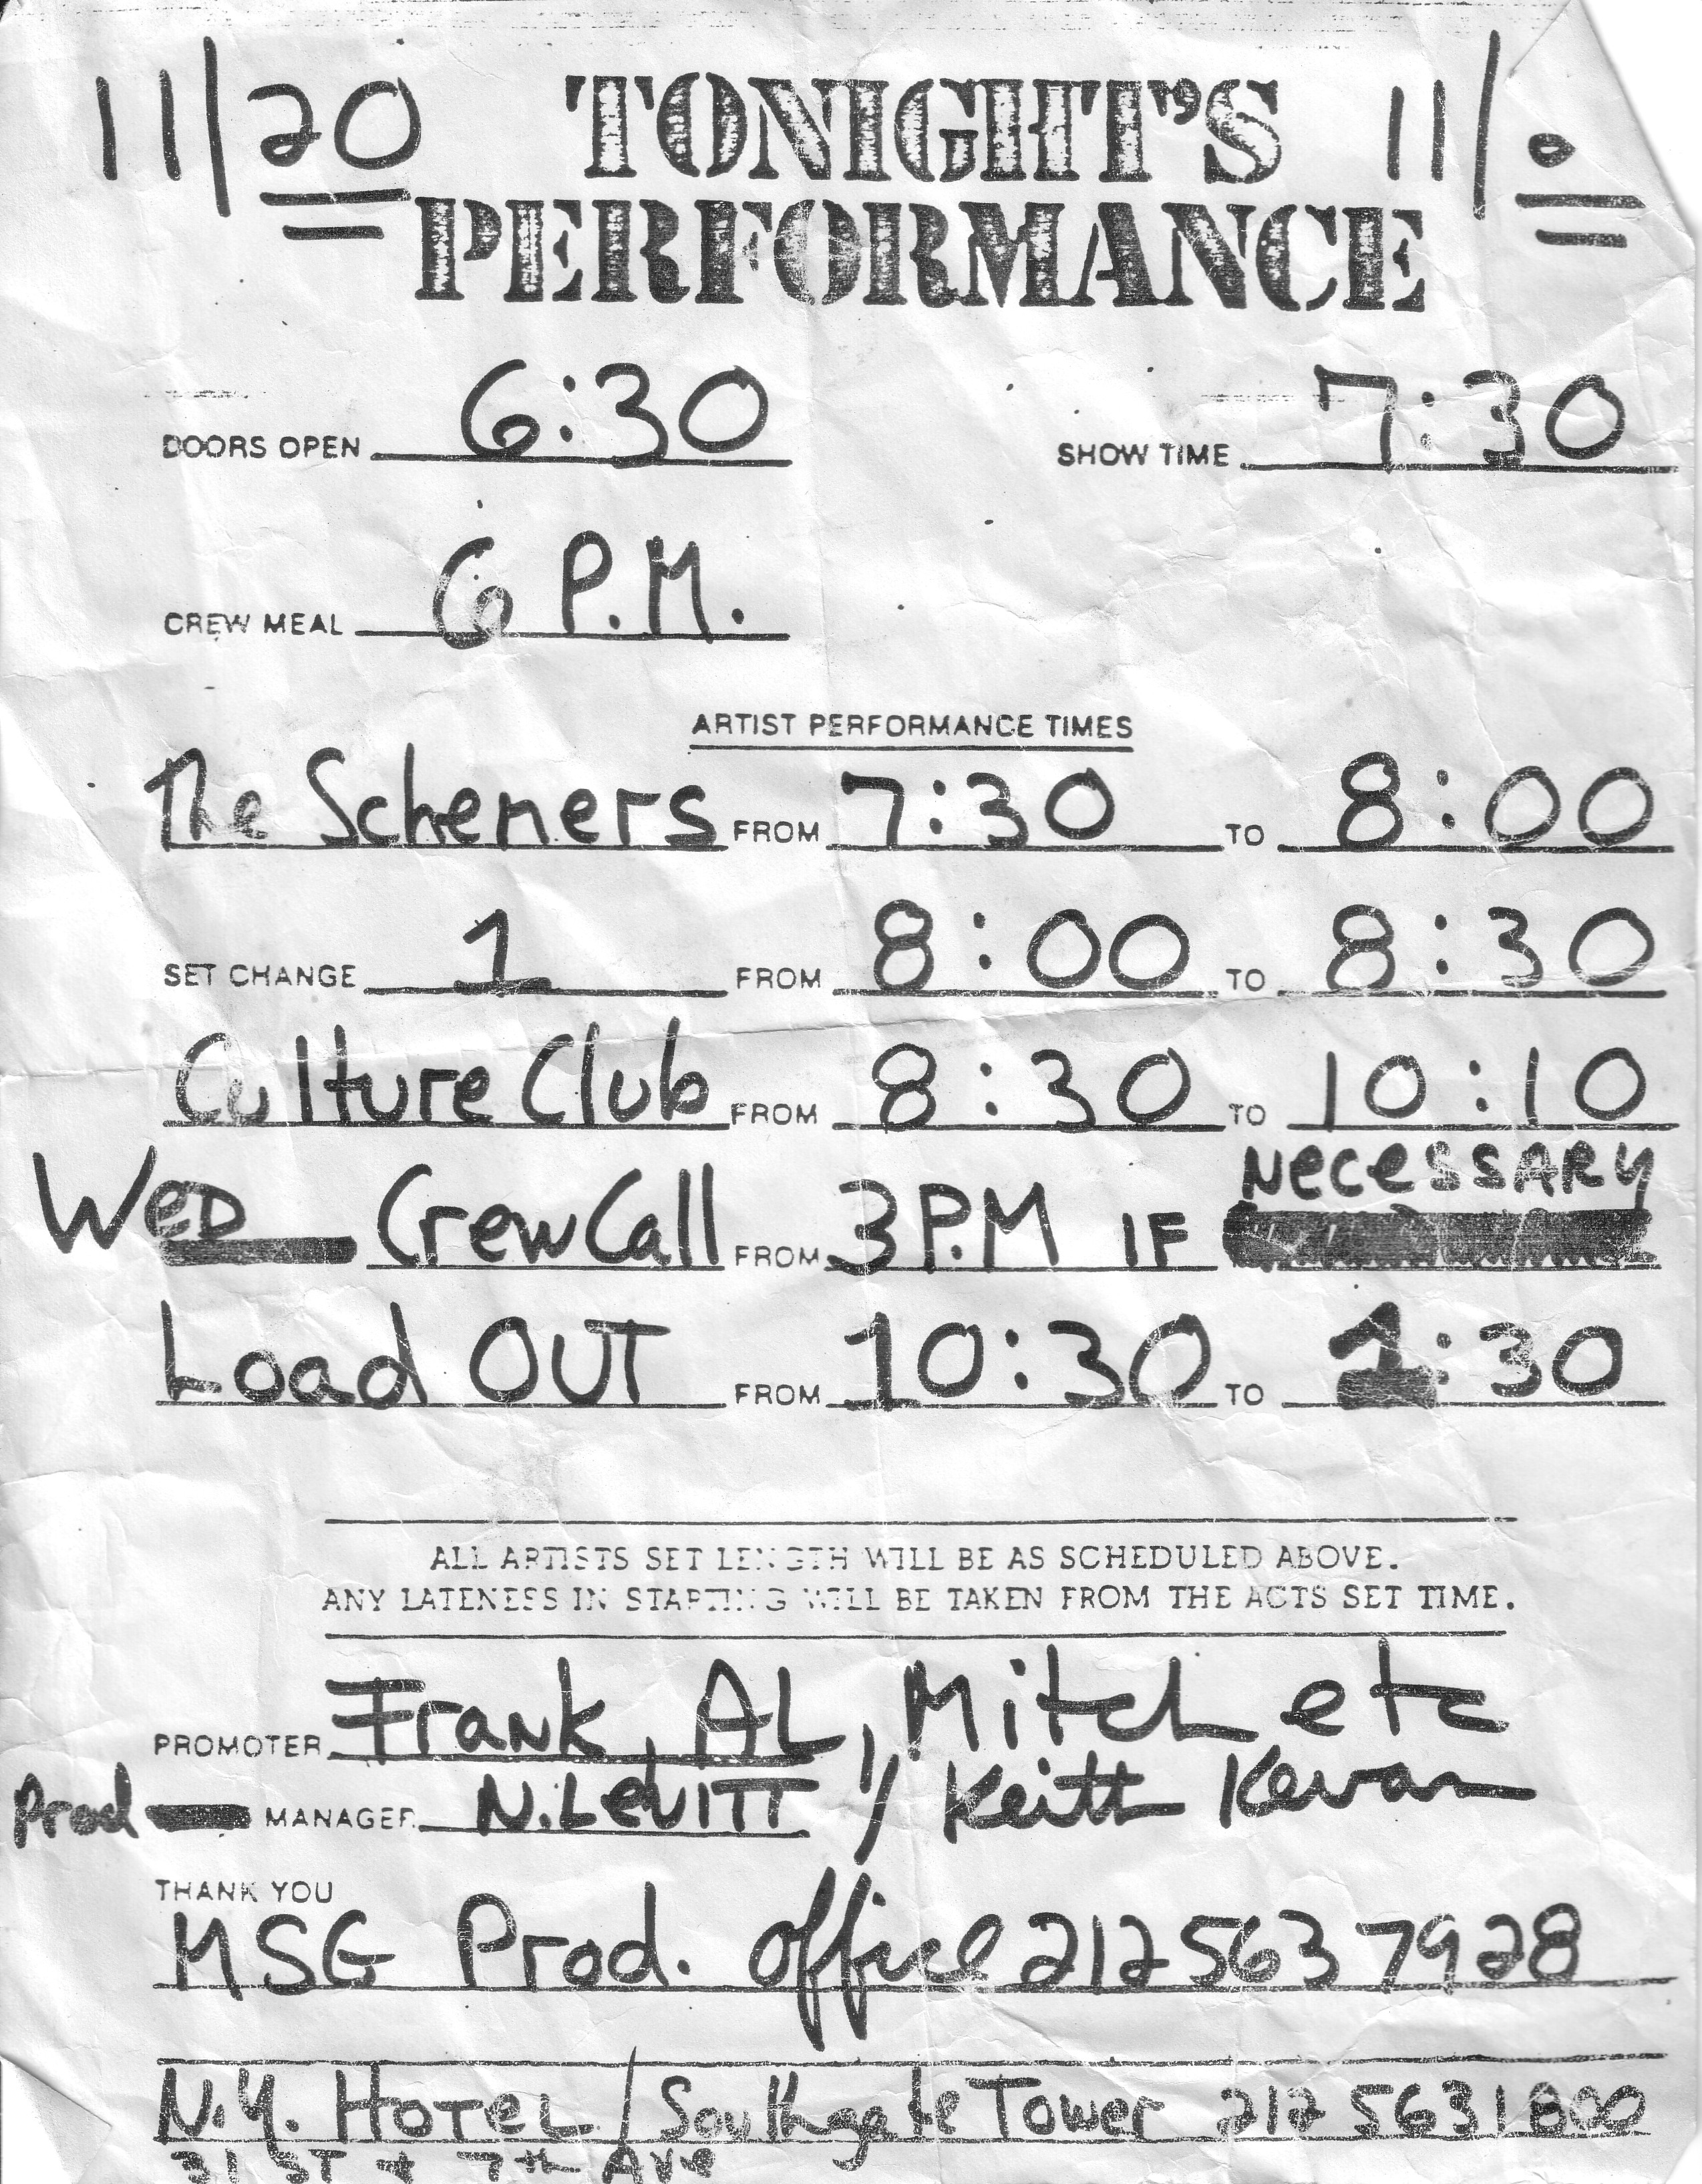 11/20 TONIGHT'S 11/
PERFORMANCE
DOORS OPEN 6:30 SHOW TIME 7:30
CREW MEAL 6 P.M.
ARTIST PERFORMANCE TIMES
The Schemers FROM 7:30 TO 8:00
SET CHANGE 1 FROM 8:00 TO 8:30
Culture Club FROM 8:30 TO 10:10
WED Crew Call FROM 3 P.M IF NECESSARY
Load OUT FROM 10:30 TO 1:30
ALL ARTISTS SET LENGTH WILL BE AS SCHEDULED ABOVE.
ANY LATENESS IN STARTING WILL BE TAKEN FROM THE ACTS SET TIME.
PROMOTER Frank, AL, Mitch etc
Prod MANAGER N. LEVITT / Keith Kevan
THANK YOU
MSG Prod. office 212 563 7928
N.Y. HOTEL / Southgate Tower 212 563 1800
31 ST & 7th Ave